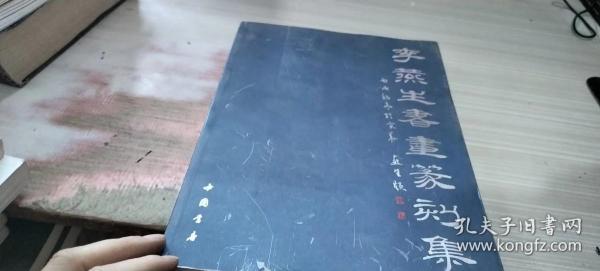 李燕生書画篆刻集
燕生题
中国書店
孔夫子旧书网
www.kongfz.com